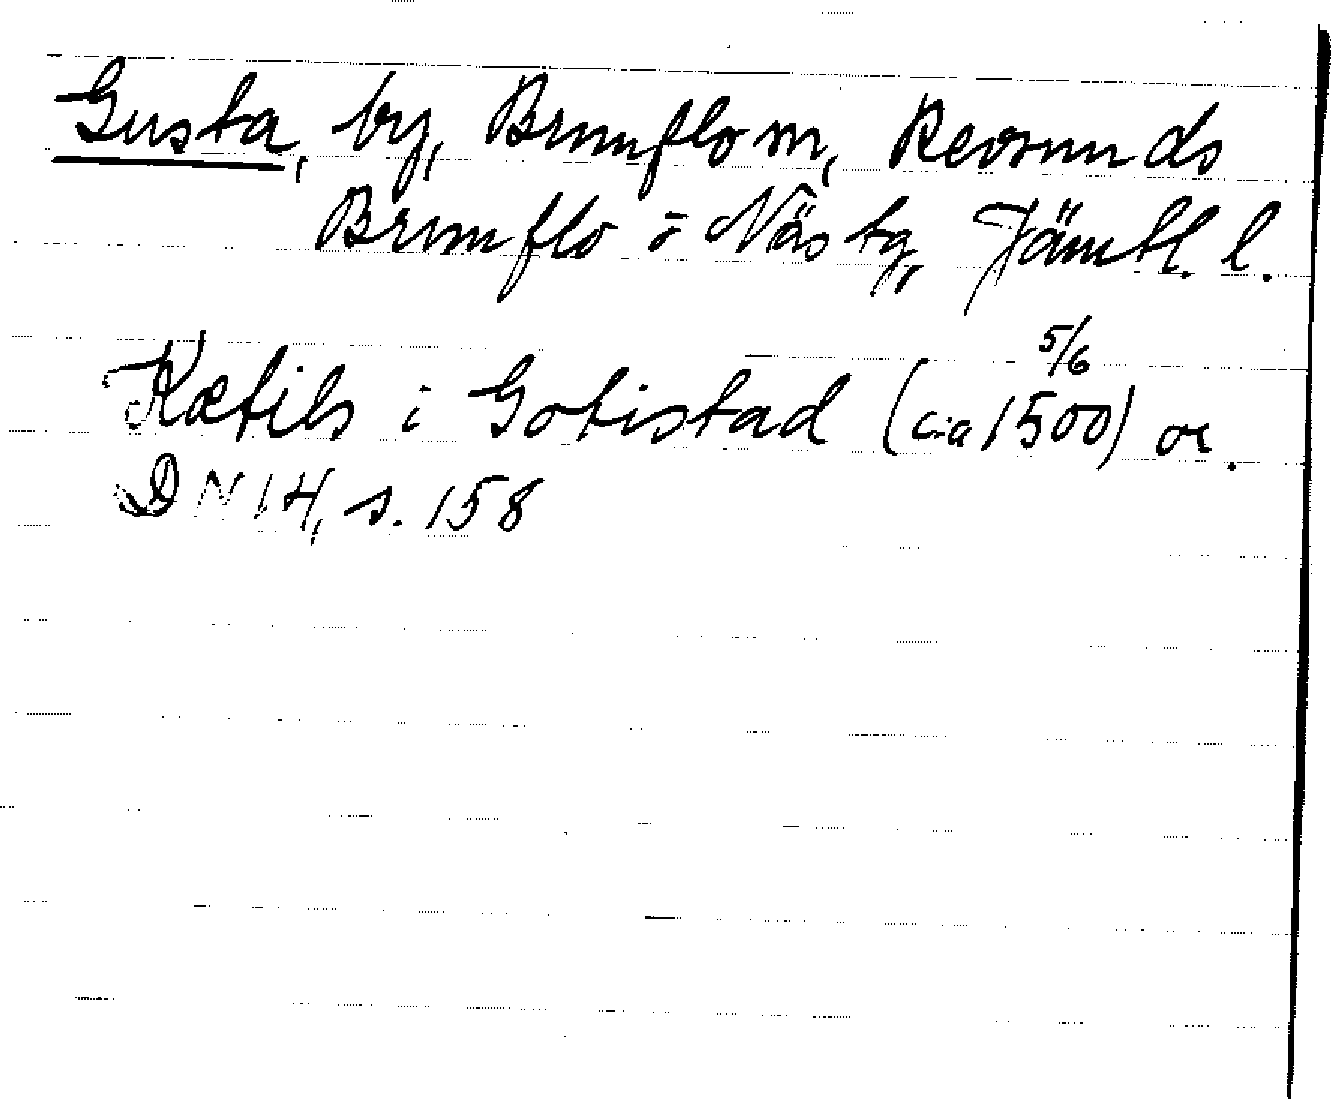 Gusta, by, Brunflo sn, Revsunds
Brunflo o Näs tg, Jämtl. l.
5/6
Kætils i Gotistad (c:a 1500) or.
DN 14, s. 158